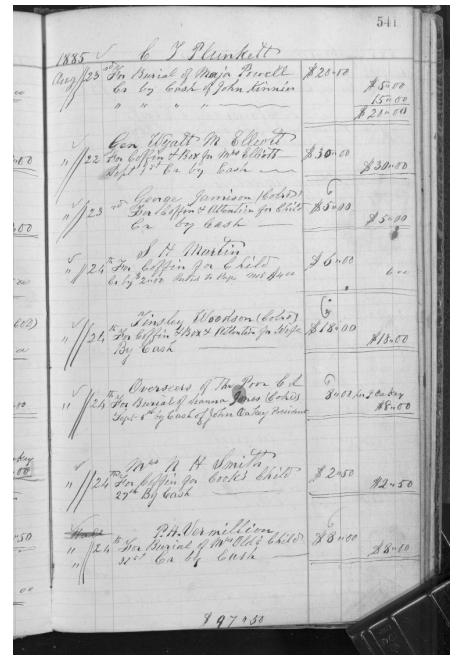 541
1885 C T Plunkett
Aug 23rd For Burial of Maja Powell $20"00
Cr by Cash of John Kinnier $5"00
" " " " 15"00
$20"00
Gen Wyatt M Elliott
" 22 For Coffin & Box for Mrs Elliott $30"00
Sept 1st Cr by Cash $30"00
George Jamison (Colred)
" 23rd For Coffin & Attention for Child $5"00
Cr by Cash $5"00
S H Martin
" 24th For Coffin for Child $6"00
Cr by 2"00
Tinsley Woodson (Colred)
" 24th For Coffin & Box & Attention for Wife $18"00
By Cash $18"00
Overseers of The Poor C d
" 24th For Burial of Jones (Colred) 8"00
Sept by Cash of John Oakey President $8"00
Mrs N H Smith
" 24th For Coffin for Cook's Child $2"50
27th By Cash $2"50
P.A. Vermillion
" 24th For Burial of Mrs Olds Child $8"00
" Cr by Cash $8"00
$97"50